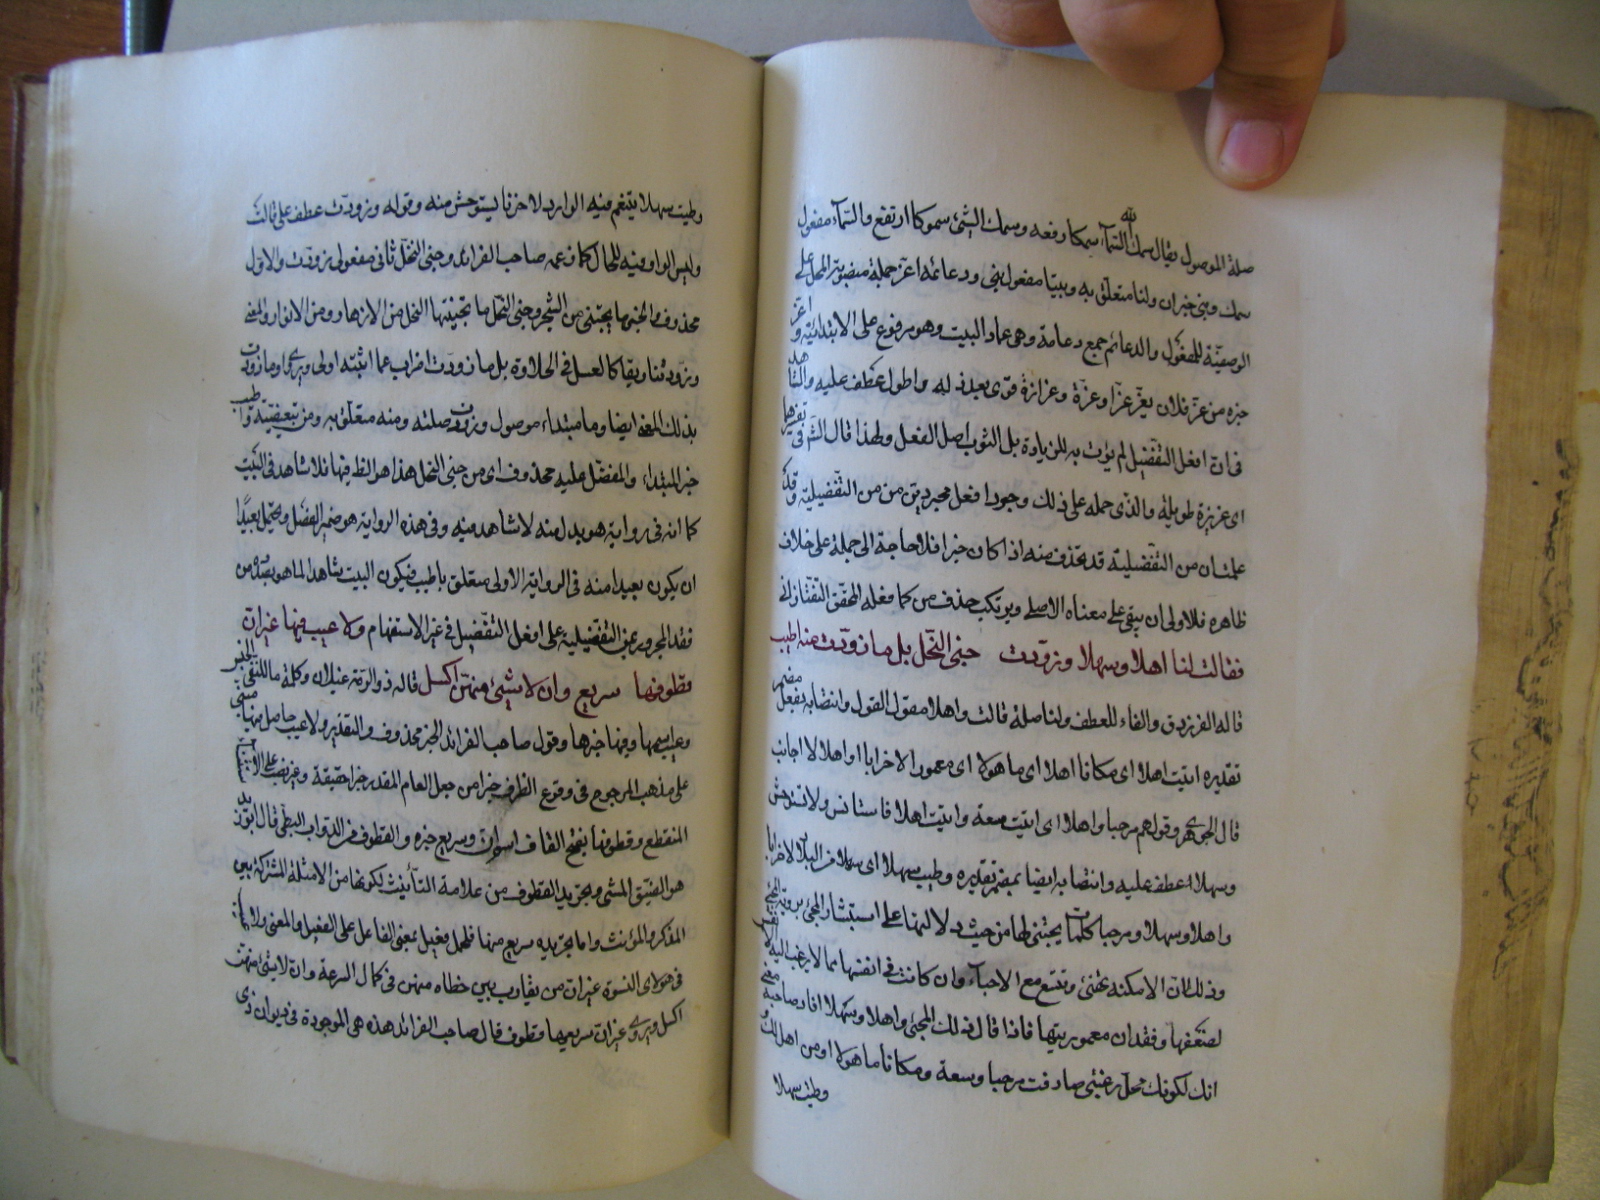 صلة الموصول يقال سمك الله السمآء سمكا رفعه وسمك الشئ سموكا ارتفع والسمآء مفعول
سمك وبنى خبر ان ولنا متعلق به وبيتا مفعول بنى ودعائمه اعز جملة منصوبة المحل على
الوصفية للمفعول والدعائم جمع دعامة وهى عماد البيت وهو مرفوع على الابتدائية و اعز
خبره من عز فلان يعز عزا وعزة وعزازة قوى بعد ذلة واطول عطف عليه والشاهد
فى ان افعل التفضيل لم يؤت به للزيادة بل لثبوت اصل الفعل ولهذا قال فى تفسيرهما
اى عزيزة طويلة والذى حمله على ذلك وجود افعل مجرد من من التفضيلية وقد
علمت ان من التفضيلية قد تحذف منه اذا كان خبرا فلا حاجة الى حمله على خلاف
ظاهره فالاولى ان يبقى على معناه الاصلى ويرتكب حذف من كما فعله المحقق التفتازانى
فقالت لنا اهلا وسهلا وزودت جنى النحل بل ما زودت منه اطيب
قاله الفرزدق والفاء للعطف ولنا صلة قالت واهلا مقول القول وانتصابه بفعل مضمر
تقديره اتيت اهلا اى مكانا اهلا اى ماهولا اى معمورا لا خرابا او اهلا لا اجانب
قال الجوهرى وقولهم مرحبا واهلا اى اتيت سعة واتيت اهلا فاستأنس ولا تستوحش
وسهلا عطف عليه وانتصابه ايضا بمضمر تقديره وطيت سهلا اى سهلا من البلاد لا خرابا
واهلا وسهلا ومرحبا كلمات يحتفى لها من حيث دلالتها على استبشار المجئ برؤية
وذلك ان الامكنة تهنئ وتتسع مع الاحباء وان كانت فى انفسها مما لا يرغب اليه
لضعفها وفقدان معموريتها فاذا قال ذلك المجئ واهلا وسهلا افاد صاحبه معنى
انك لكونك محل رغبتى صادفت مرحبا وسعة ومكانا ماهولا او من اهل لك و
وطيت سهلا
وطيت سهلا يتنعم فيه الوارد لا حزنا يستوحش منه وقوله وزودت عطف على قالت
وليس الواو فيه للحال كما زعمه صاحب الفرائد وجنى النحل ثانى مفعولى زودت والاول
محذوف والجنى ما يجتنى من الشجر وجنى النحل ما تجتنيها النحل من الازهار ومن الانوار والمعنى
وزودتنا ريقا كالعسل فى الحلاوة بل ما زودت اضراب عما اثبته اولى ويروى او ما زودت
بذلك المعنى ايضا وما مبتداء موصول وزودت صلته ومنه متعلق به ومن تبعيضية واطيب
خبر المبتداء والمفضل عليه محذوف اى من جنى النحل هذا هو الظ فيها فلا شاهد فى البيت
كما انه فى رواية هو بدل منه لا شاهد فيه وفى هذه الرواية هو ضمير الفصل ويحتمل بعيدا
ان يكون بعيدا منه فى الرواية الاولى متعلق باطيب فيكون البيت شاهدا لما هو بصدده من
تقدم المجرور بمن التفضيلية على افعل التفضيل فى غير الاستفهام ولا عيب فيها غير ان
قطوفها سريع وان لا شئ منهن اكسل قاله ذو الرمة غيلان وكلمة ما لنفى الجنس
وعيب اسمها وفيها خبرها وقول صاحب الفرائد الخبر محذوف والتقدير ولا عيب حاصل فيها مبنى
على مذهب المرجوح فى وقوع الظرف خبرا من جعل العام المقدر خبرا حقيقة وغير نصب على الاستثناء
المنقطع وقطوفها بفتح القاف اسم ان وسريع خبره والقطوف من الدواب البطى قال ابو زيد
هو الضيق المشى وتجريد القطوف من علامة التأنيث لكونها من الامثلة المشتركة بين
المذكر والمؤنث واما تجريد سريع منها فلحمل فعيل بمعنى الفاعل على الفعيل والمعنى
فى هؤلاى النسوة غير ان من يقارب بين خطاه منهن فى كمال السرعة وان لا شئ منهن
اكسل ويروى غير ان سريعها قطوف قال صاحب الفرائد هذه هى الموجودة فى ديوان ذى